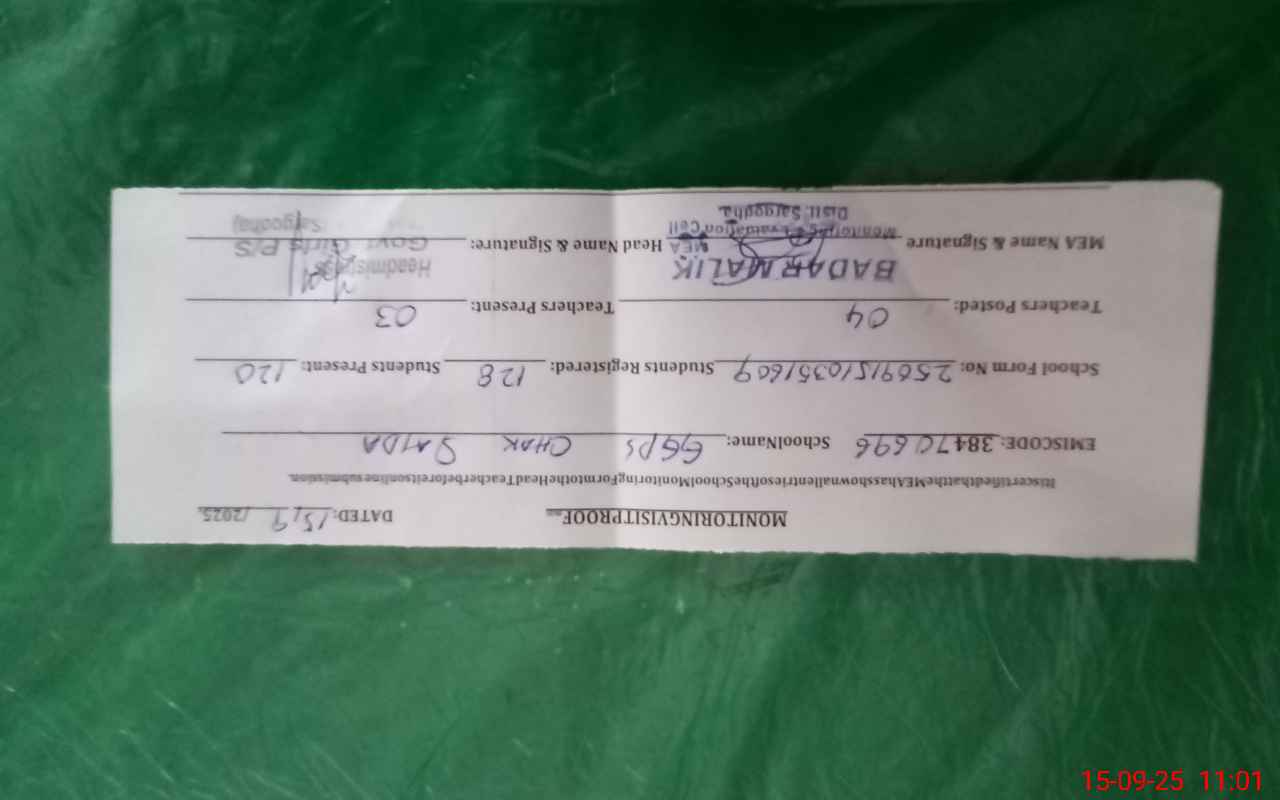 MONITORINGVISITPROOF DATED: 15/9 /2025.
ItiscertifiedthattheMEAhasshownallentriesoftheSchoolMonitoringFormtotheHeadTeacherbeforeitsonlinesubmission.
EMISCODE: 38470696 SchoolName: GGPS CHAK SAIDA
School Form No: Students Registered: 128 Students Present: 120
Teachers Posted: 04 Teachers Present: 03
BADARMALIK Headmistress
MEA Name & Signature MEA Head Name & Signature: Govt Girls P/S
Monitoring & Evaluation Cell Sargodha)
Distt. Sargodha.
15-09-25 11:01